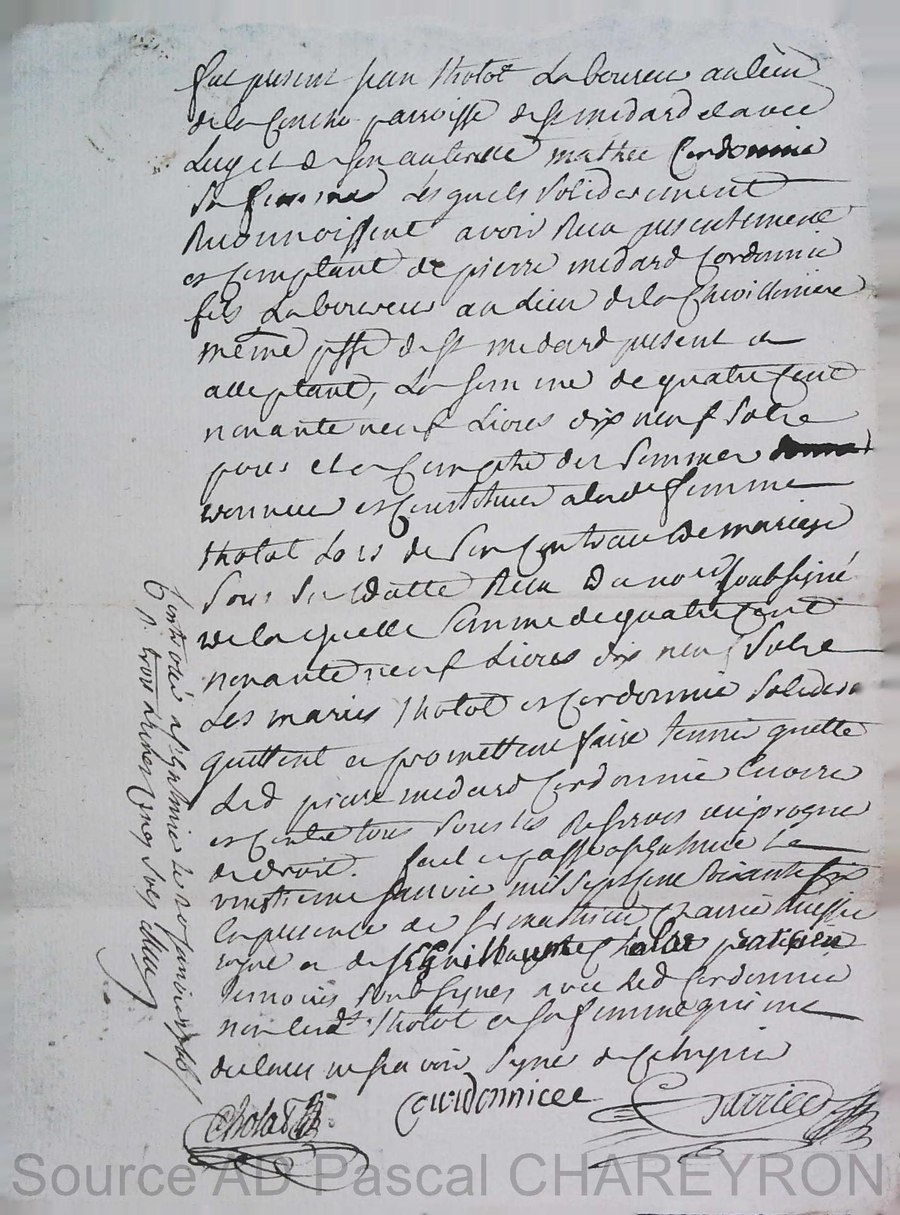 fut present jean thotot Laboureur au lieu
de la Conche parroisse de St medard et avec
Luy et de son autorité mathee Cordonnie
sa femme Lesquels solidairement
Reconnoissent avoir Recu presentement
et Comptant de pierre medard Cordonnie
fils Laboureur au Lieu de la
même psse de St medard present et
acceptant, La somme de quatre Cent
nonante neuf Livres dix neuf sols
pour et a Compte des sommes
et Constituée a lad femme
thotot Lors de son Contrat de mariage
sous sa datte Recu Du no.re soubsigné
de laquelle somme de quatre Cent
nonante neuf Livres dix neuf sols
Les maries thotot et Cordonnie solidair
quittent et promettent faire tenir quitte
Led pierre medard Cordonnie Envers
et Contre tous sous les Reserves
de droit. fait et passé a St Galmier Le
vingtieme janvier mil sept cent soixante six
En presence de Sr mathieu
et de Sr Guillaume Cholat praticien
temoins soubsignes avec Led Cordonnie
non Lesd.ts thotot et sa femme qui ont
declaré ne scavoir signer de Ce Enquis
Cholat Courdonnicee
Controlé a St Galmier le 20 janvier 1766
R. trois livres Cinq sols
Source AD Pascal CHAREYRON